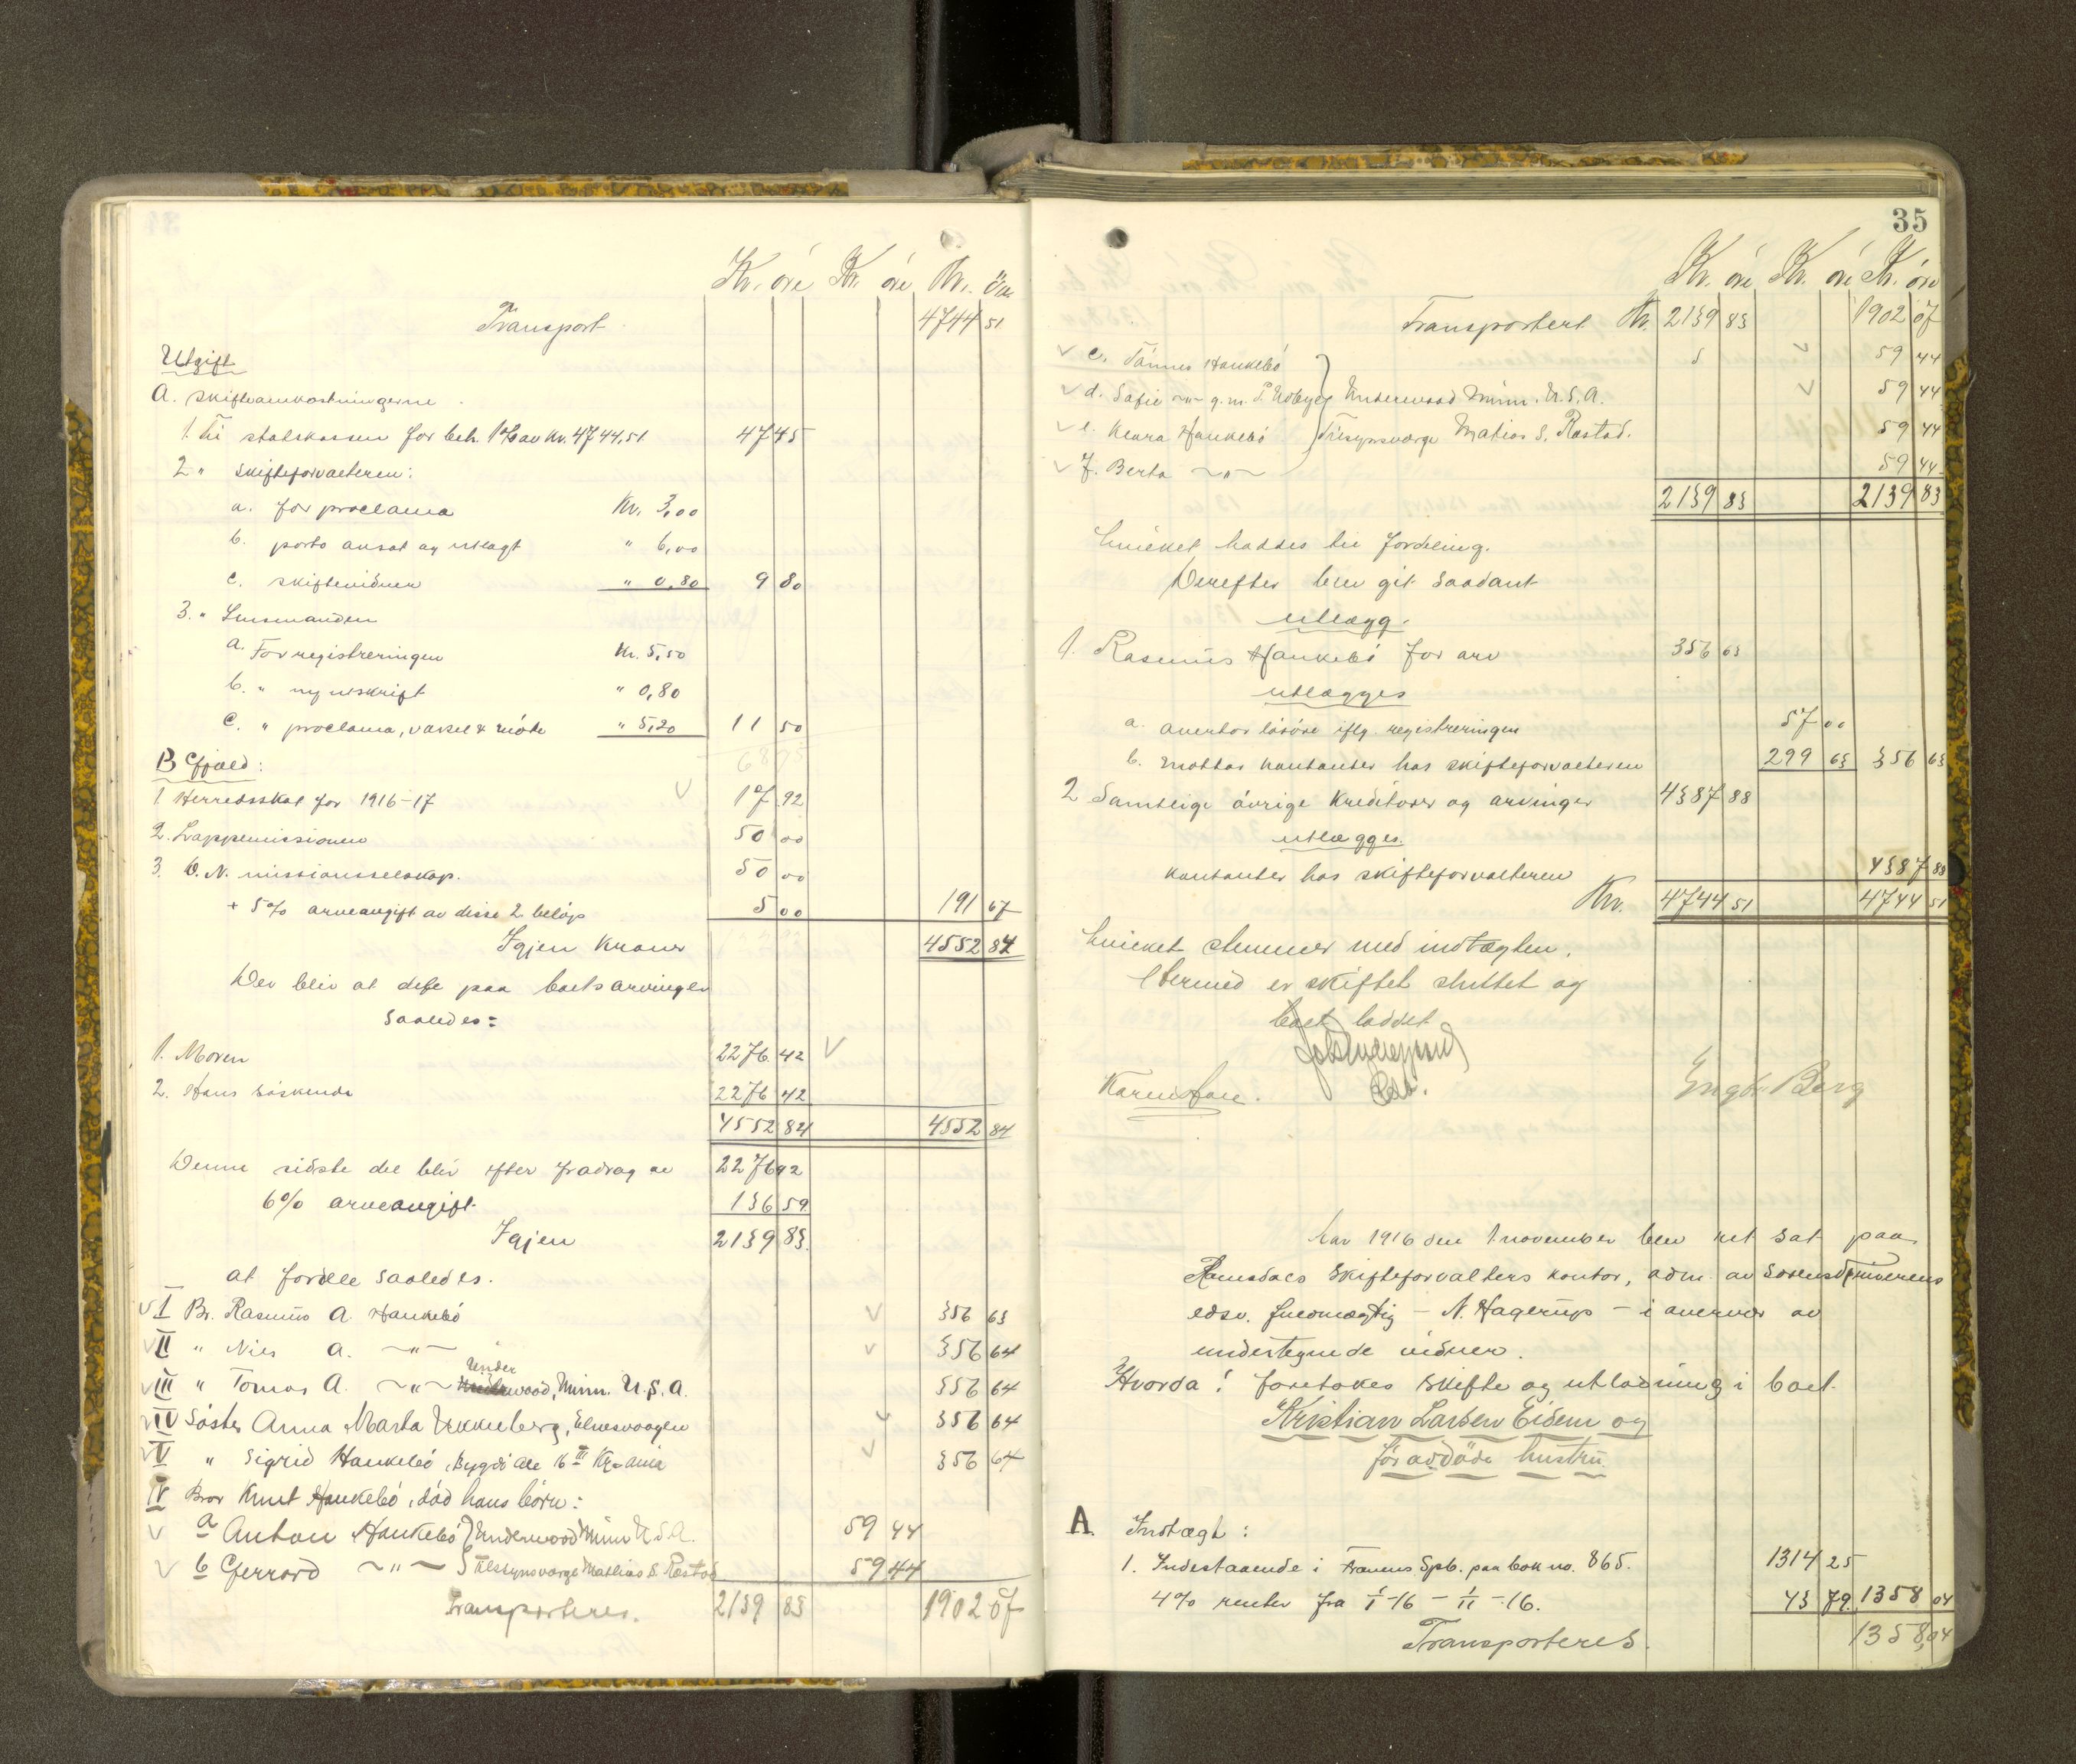 Kr. öre Kr. öre Kr. öre
Transport 4744 51
Utgift
A. Skifteomkostningerne.
1. Til statskassen for beh. 1% av kr. 4744,51 47 45
2 " skifteforvalteren:
a. for proclama Kr. 3,00
b. porto ansat og utlagt " 6,00
c. skiftevidner " 0,80 9 80
3. " Lensmanden
a. For registreringen Kr. 5,50
b. " ny utskrift " 0,80
c. " proclama, varsel & möte " 5,20 11 50
68 75
B Gjæld:
1 Herredsskat for 1916-17 17 92
2. Lappemissionen 50 00
3. D. N. missionsselskap. 50 00
+ 5% arveavgift av disse 2 belöp 5 00 191 67
Igjen Kroner 4552 84
Der blir at dele paa boets arvinger
saaledes:
1. Moren 2276 42
2. Hans söskende 2276 42
4552 84 4552 84
Denne sidste del blir efter fradrag av 2276 42
6% arveavgift. 136 59
Igjen 2139 83
at fordele saaledes.
I Br. Rasmus A. Haukebö 356 63
II " Nils A. -"- 356 64
Under
III " Tomas A. -"- wood, Minn. U.S.A. 356 64
IV Söster Anna Marta Ukkelberg, Elnesvaagen 356 64
V " Sigrid Haukebö, Bygdö Alle 16 III Kr-ania 356 64
IV Bror Knut Haukebö, död hans börn:
a Anton Haukebö } Underwood Minn U.S.A. 59 44
b Gerrard -"- } tilsynsværge Mathias S. Rostad 59 44
Transporteres. 2139 83 1902 07
35
Kr. öre Kr. öre Kr. öre
Transportert Kr. 2139 83 1902 07
c. Tönnes Haukebö 59 44
d. Sofie -"- g.m. Underwood Minn. U.S.A. 59 44
e. Klara Haukebö Tilsynsværge Matias S. Rostad. 59 44
f. Berta -"- 59 44
2139 83 2139 83
hvilket haddes til fordeling.
Derefter blev git saadant
utlægg.
1. Rasmus Haukebö for arv 356 63
utlægges
a. avertor lösöre iflg. registreringen 57 00
b. mottar kontanter hos skifteforvalteren 299 63 356 63
2 Samtlige övrige kreditorer og arvinger 4387 88
utlægges.
kontanter hos skifteforvalteren 4387 88
Kr. 4744 51 4744 51
hvilket stemmer med indtægten.
Hermed er skiftet sluttet og
boet loddet
Engb. Berg
Aar 1916 den 1 november blev ret sat paa
Romsdals skifteforvalters kontor, adm. av Sorenskriverens
edsv. fuldmægtig - N. Hagerup - i overvær av
undertegnede vidner.
Hvorda: foretokes skifte og utlodning i boet.
Kristian Larsen Eidem og
föravdöde hustru.
A. Indtægt:
1. Indestaaende i Frænens Spb. paa bok no. 865. 1314 25
4% renter fra 1/1-16 - 1/11-16. 43 79 1358 04
Transporteres. 1358,04